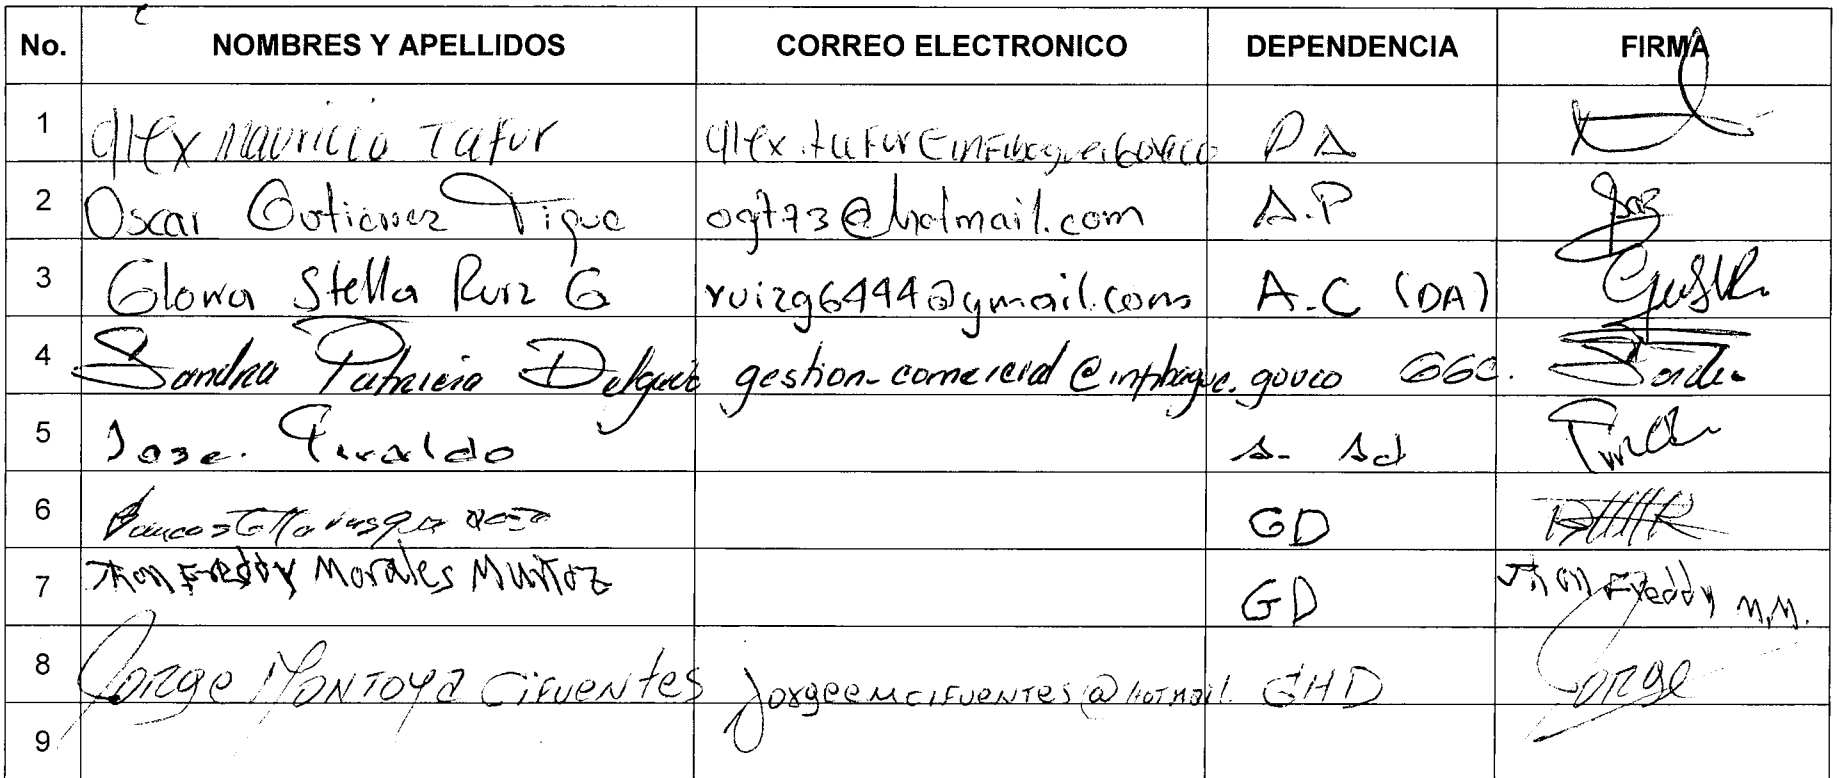 No. NOMBRES Y APELLIDOS CORREO ELECTRONICO DEPENDENCIA FIRMA
1 Alex Mauricio Tafur alex.tafur@infibague.gov.co DA
2 Oscar Gutierrez Tique ogt73@hotmail.com A.P
3 Gloria Stella Ruiz G ruizg6444@gmail.com A.C (DA)
4 Sandra Patricia Delgado gestion-comercial@infibague.gov.co GGC. Sandra
5 Jose. Giraldo A. Ad
6 GD
7 Jhon Freddy Morales Muñoz GD Jhon Freddy M.M.
8 Jorge Montoya Cifuentes jorgeemcifuentes@hotmail. GHD Jorge
9